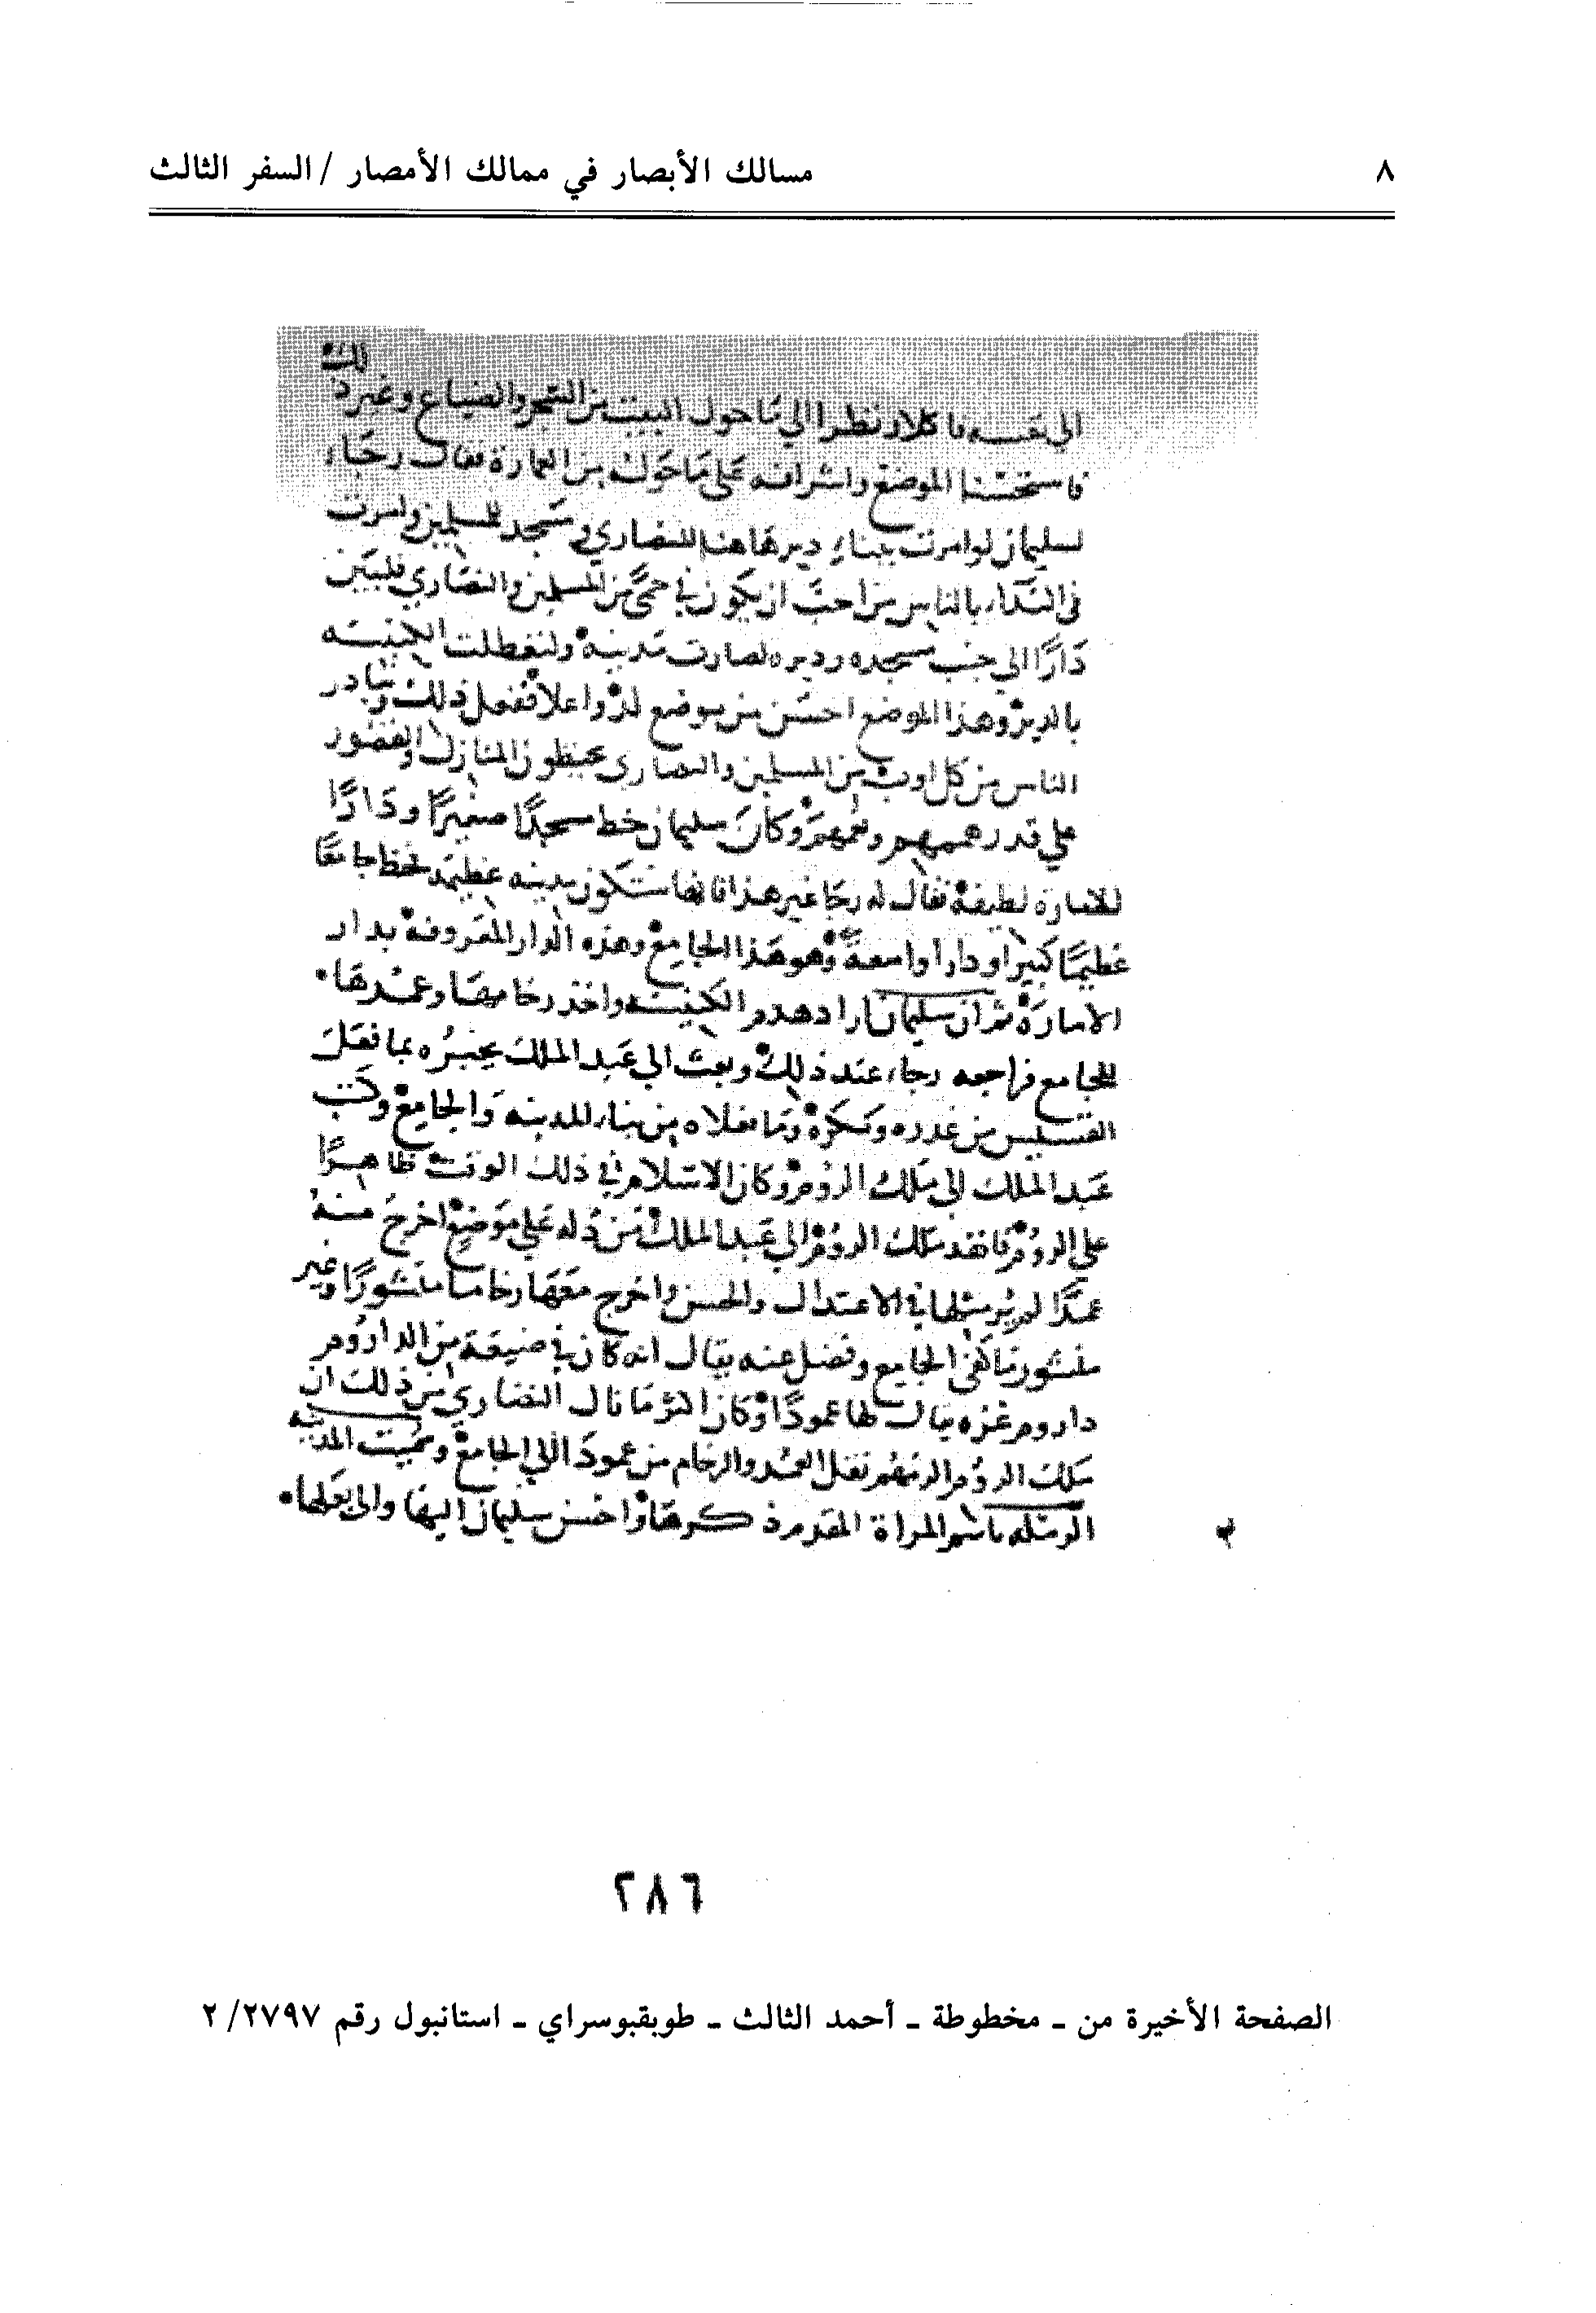 ٨
مسالك الأبصار في ممالك الأمصار / السفر الثالث
لك
الي فاكلا ونظرا الي ما حول البيت من الشجر والضياع وغير ذ
فاستحسنا الموضع واشرافه على ما حوله من العمارة فقال رجاء
لسليمان لوامرت ببناء دير هاهنا للنصاري ومسجد للمسلمين وامرت
في النداء بالناس من احب ان يكون في حمى من المسلمين والنصاري فليبن
دارا الي جنب مسجده وديره لصارت مدينه ولتعطلت الكنيسه
بالدير وهذا الموضع احسن من موضع لد واعلا ففعل ذلك وتبادر
الناس من كل اوب من المسلمين والنصاري يختطون المنازل والقصور
علي قدر هممهم ونعمهم وكان سليمان خط مسجدا صغيرا ودارا
للامارة لطيفة فقال له رجا غير هذا فانها ستكون مدينه عظيمه فخط جامعا
عظيما كبيرا ودارا واسعة وهو هذا الجامع وهذه الدار المعروفة بدار
الامارة ثم ان سليمان اراد هدم الكنيسه واخذ رخامها وعمدها
للجامع فراجعه رجاء عند ذلك وبعث الي عبد الملك يخبره بما فعل
القسيس من غدره ومكره وما فعلاه من بناء المدينه والجامع وكتب
عبد الملك الى ملك الروم وكان الاسلام في ذلك الوقت ظاهرا
على الروم فانفذ ملك الروم الي عبد الملك من دله علي موضع اخرج منه
عمدا لم ير مثلها في الاعتدال والحسن واخرج معها رخاما منشورا وغير
منشور ما كفى الجامع وفضل عنه يقال انه كان في ضيعة من الداروم
داروم غزه يقال لها عمودا وكان اكثر ما نال النصاري من ذلك ان
ملك الروم الزمهم نقل العمد والرخام من عمودا الي الجامع وسميت المدينه
الرمله باسم المراة المقدم ذكرها واحسن سليمان اليها والى بعلها
٢٨٦
الصفحة الأخيرة من ـ مخطوطة ـ أحمد الثالث ـ طوبقبوسراي ـ استانبول رقم ٢/٢٧٩٧